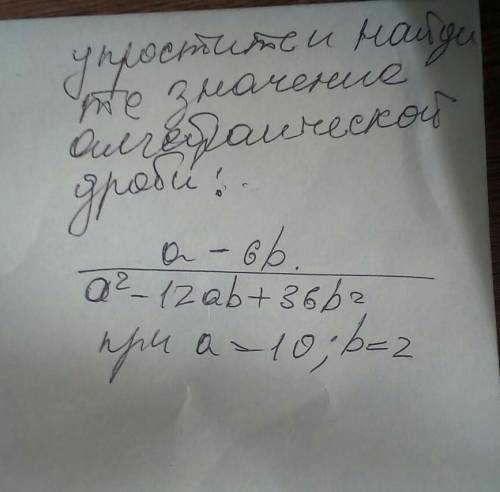 упростите и найди
те значение
алгебраической
дроби:
a - 6b.
a² - 12ab + 36b²
при a = 10; b = 2